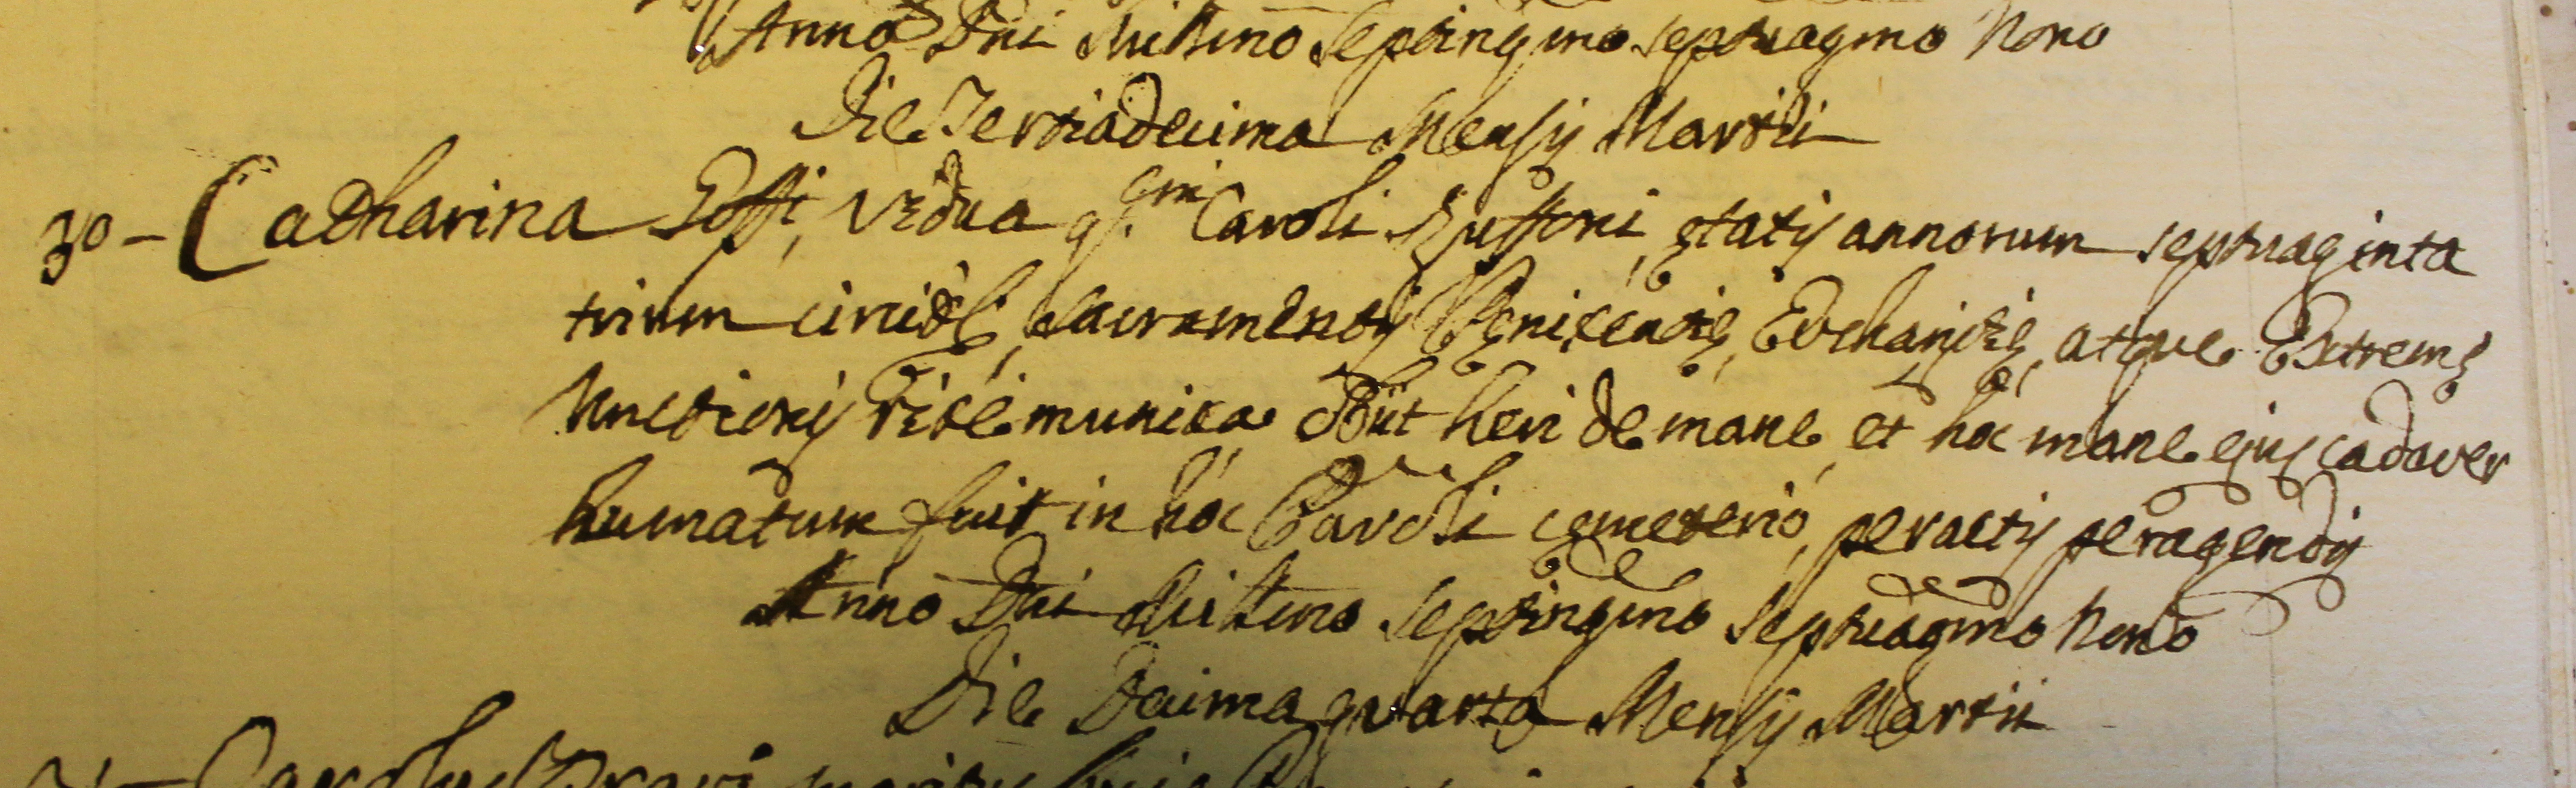 Anno Dni Millmo Septingmo Septuagmo Nono
Die Tertiadecima Mensis Martii
30 - Catharina Goffi, Vidua qm Caroli Ruffoni, ętatis annorum septuaginta
trium circiter, Sacramentis Pęnitentię, Eucharistię, atque Extremę
Unctionis rite munita Obiit heri de mane, et hoc mane ejus cadaver
humatum fuit in hoc Paroli cęmeterio, peractis peragendis
Anno Dni Millmo Septingmo Septuagmo Nono
Die Decima quarta Mensis Martii